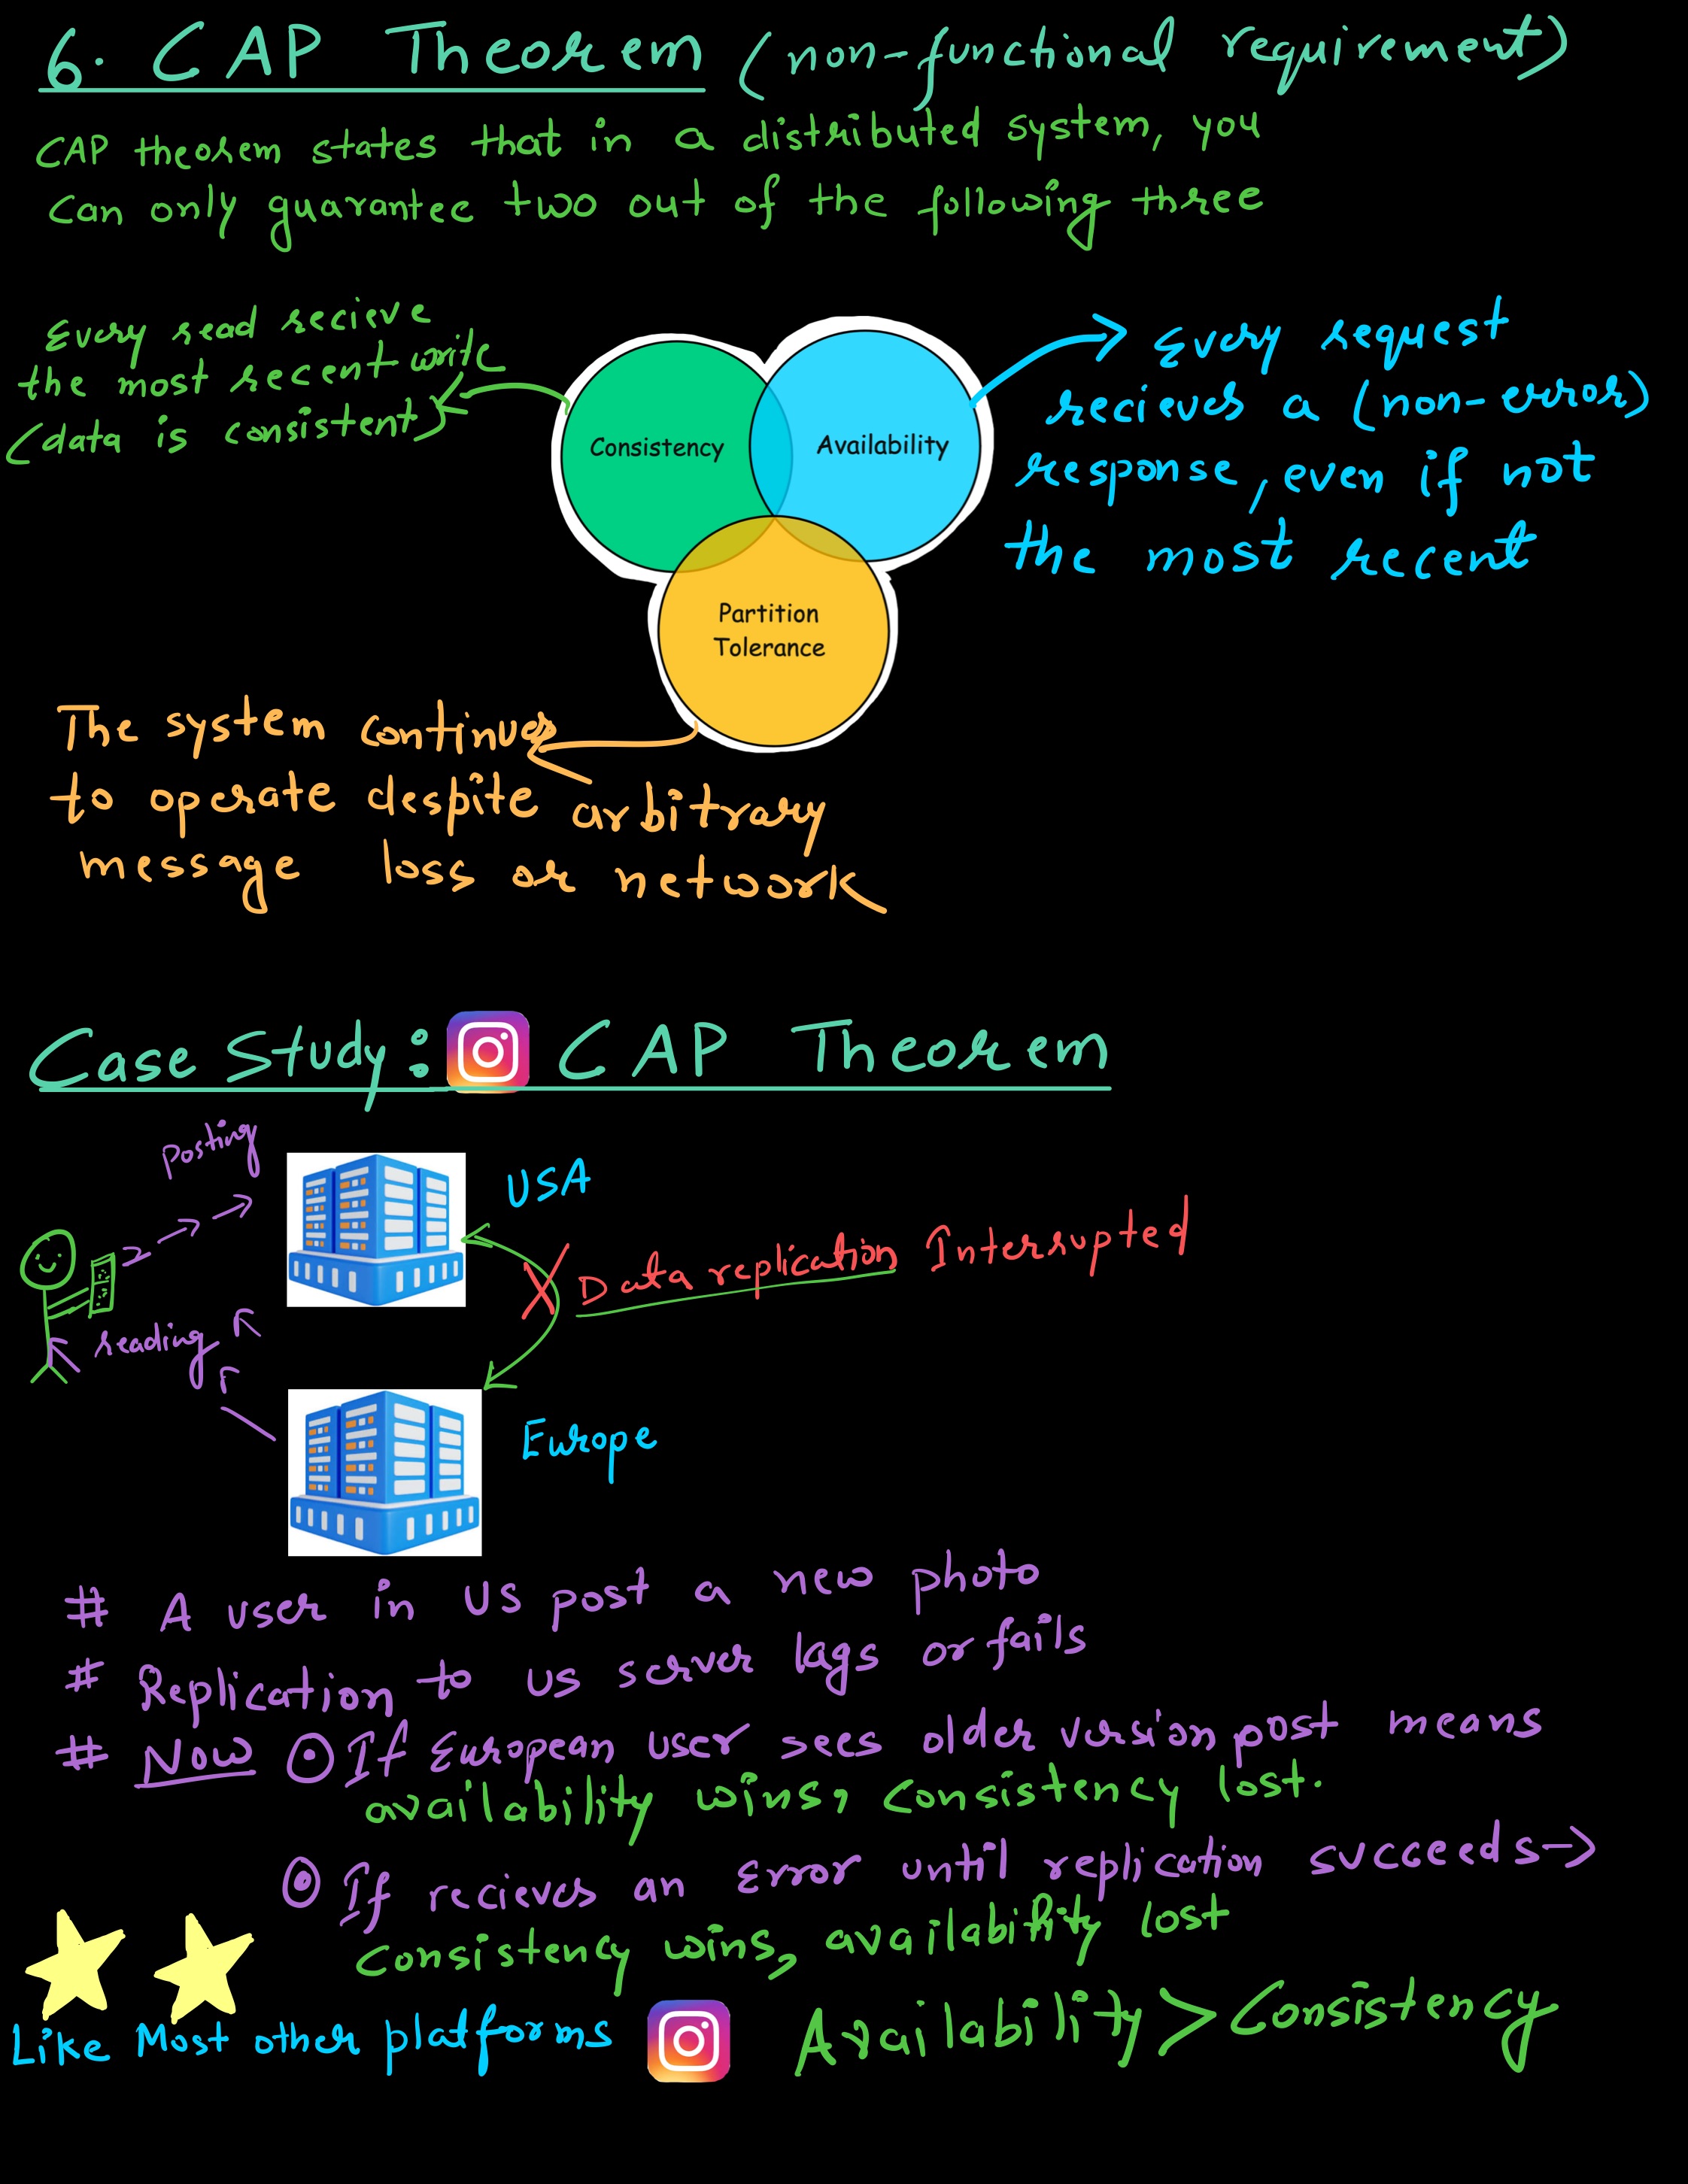 6. CAP Theorem (non-functional requirement)
CAP theorem states that in a distributed system, you
can only guarantee two out of the following three
Every read recieve
the most recent write
(data is consistent)
Consistency
Availability
Partition
Tolerance
Every request
recieves a (non-error)
response, even if not
the most recent
The system continues
to operate despite arbitrary
message loss or network
Case Study: CAP Theorem
Posting
USA
Data replication Interrupted
reading
Europe
# A user in US post a new photo
# Replication to us server lags or fails
# Now ⊙ If European user sees older version post means
availability wins, consistency lost.
⊙ If recieves an Error until replication succeeds →
Consistency wins, availability lost
Like Most other platforms
Availability > Consistency